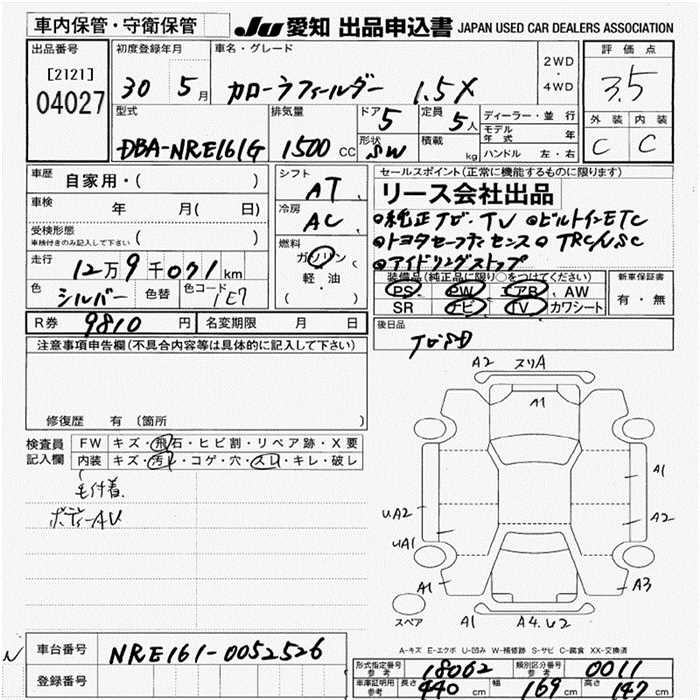 車内保管・守衛保管 JU 愛知 出品申込書 JAPAN USED CAR DEALERS ASSOCIATION
出品番号 初度登録年月 車名・グレード 2WD・4WD 評価点
[2121] 04027 30 5月 カローラフィールダー 1.5X 3.5
型式 排気量 ドア 5 定員 5人 ディーラー・並行 外装 内装
モデル年式 年 C C
DBA-NRE161G 1500 CC 形状 SW 積載 kg ハンドル 左・右
車歴 自家用・( ) シフト AT セールスポイント(正常に機能するものに限ります)
リース会社出品
車検 年 月(日) 冷房 AC ◎純正ナビ・TV ◎ビルトインETC
受検形態 車検付きのみ記入して下さい ( ) 燃料 ガソリン・軽・油 ( ) ◎トヨタセーフティセンス◎ TRC/VSC
◎アイドリングストップ
走行 12万9千071km 装備品(純正品に限り○をつけてください) 新車保証書
色 シルバー 色替 色コード 1E7 PS PW エアB AW 有・無
SR ナビ TV カワシート
R券 9810円 名変期限 月 日 後日品
ナビSD
注意事項申告欄(不具合内容等は具体的に記入して下さい)
修復歴 有(箇所 )
検査員記入欄 FW キズ・飛石・ヒビ割・リペア跡・X要
内装 キズ・汚レ・コゲ・穴・スレ・キレ・破レ
毛付着
ボディーAU
A2 スリA
A1
A1
UA2 A2
UA1
A1 A3
スペア A1 A4.U2
A-キズ E-エクボ U-凹み W-補修跡 S-サビ C-腐食 XX-交換済
車台番号 NRE161-0052526
登録番号
形式指定番号 参考 18062 類別区分番号 参考 0011
車庫証明用 参考 長さ 440cm 幅 169cm 高さ 147cm